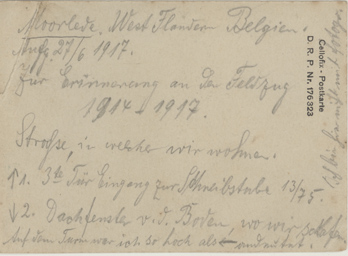 Moorlede. West Flandern Belgien.
Aufg. 27/6 1917.
Zur Erinnerung an den Feldzug
1914-1917.
Strasse, in welcher wir wohnen.
↑1. 3te Tür Eingang zur Schreibstube 13/75.
↓2. Dachfenster v. d. Boden, wo wir schlafen
Auf dem Turm war ich so hoch als ← andeutet.
Cellofix-Postkarte
D. R. P. Nr. 176 323